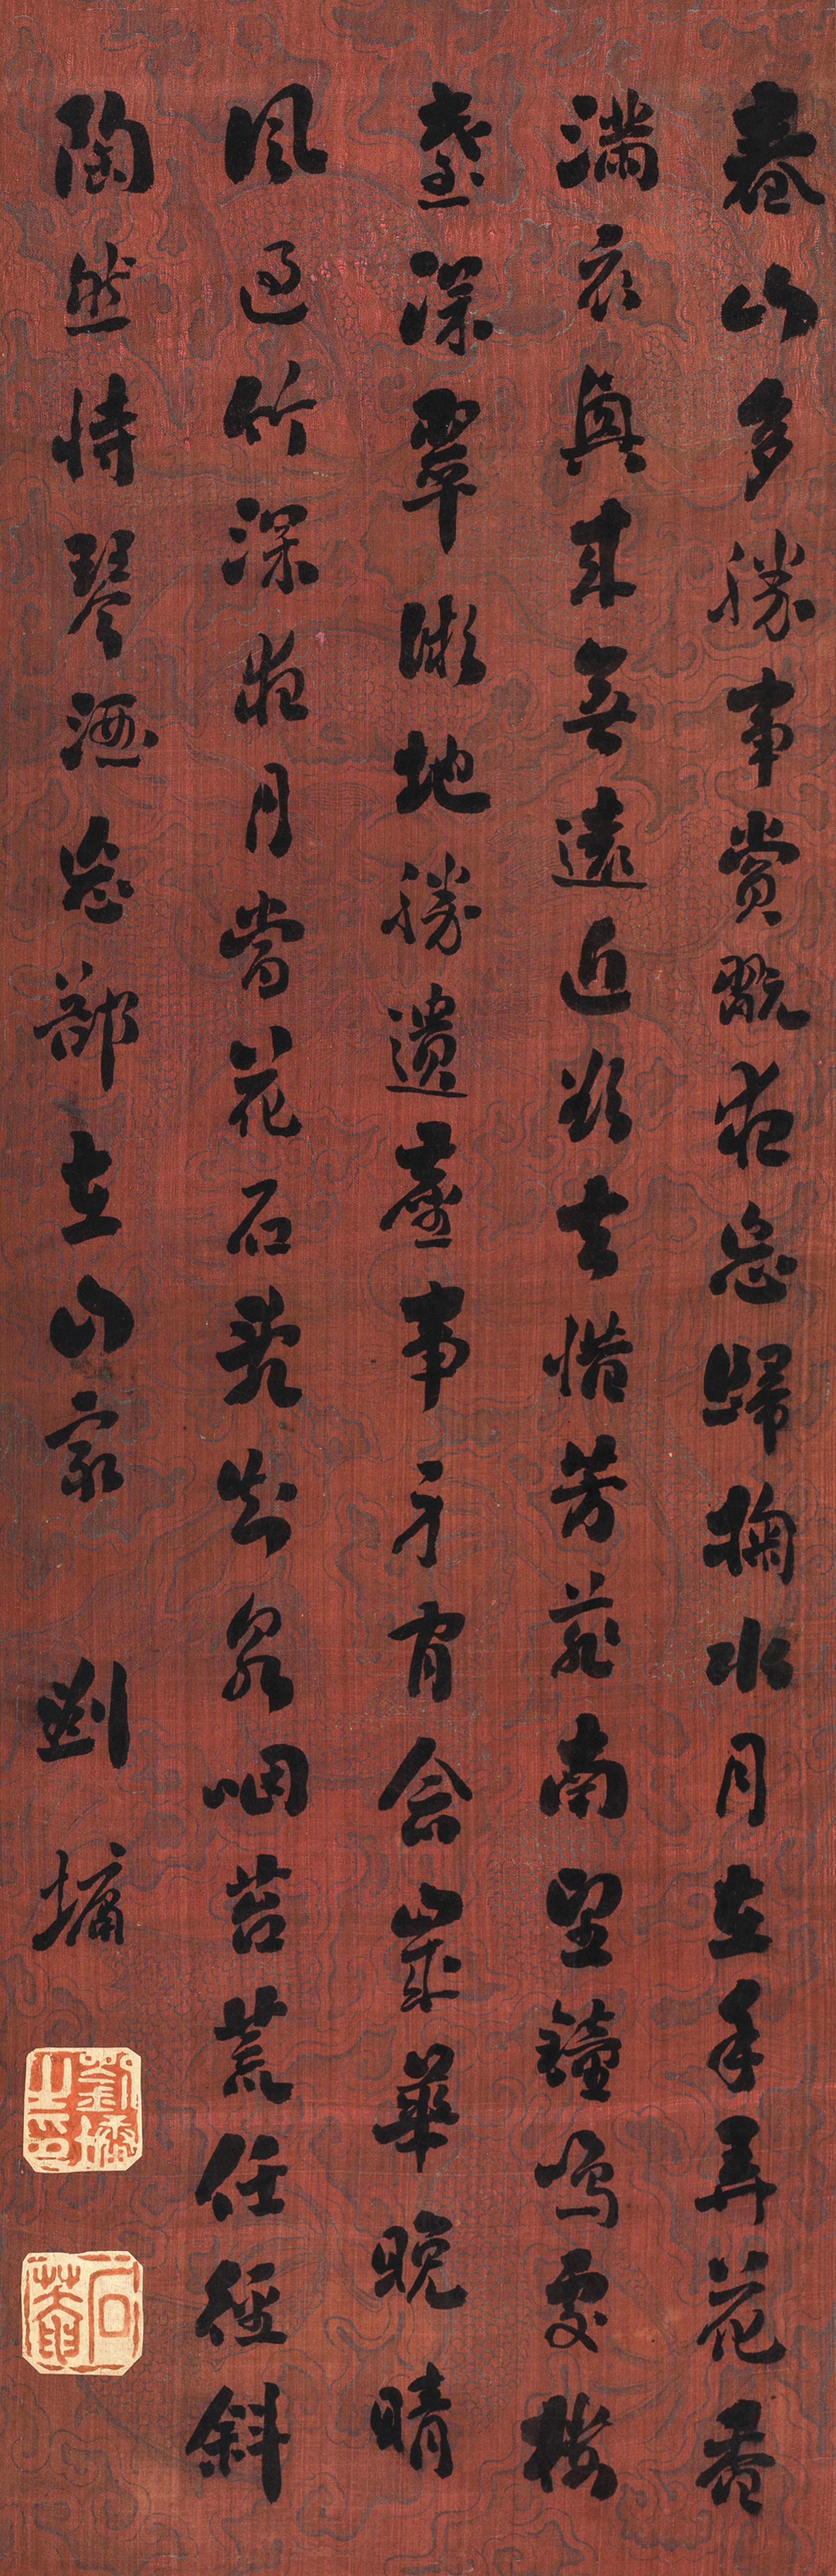 春山多勝事賞翫夜忘歸掬水月在手弄花香
滿衣興來無遠近欲去惜芳菲南望鐘鳴處樓
臺深翠微地勝遺塵事身閒念歲華晚晴
風過竹深夜月當花石亂知泉咽苔荒任徑斜
陶然恃琴酒忘郤在山家
劉墉
劉墉之印
石菴